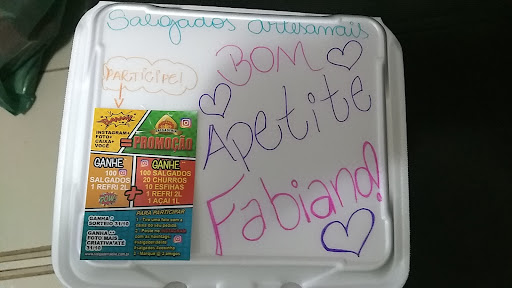 Salgados artesanais
BOM
Apetite
Fabiano!
PARTICIPE!
INSTAGRAM+
FOTO+
CAIXA+
VOCÊ
=PROMOÇÃO
GANHE
100
SALGADOS
1 REFRI 2L
+
GANHE
100 SALGADOS
20 CHURROS
10 ESFIHAS
1 REFRI 2L
1 AÇAI 1L
GANHA O
SORTEIO 31/10
GANHA A
FOTO MAIS
CRIATIVA ATÉ
31/10
PARA PARTICIPAR